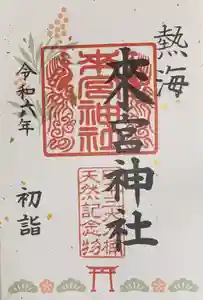 熱海
來宮神社
令和六年
初詣
來宮神社
天然記念物